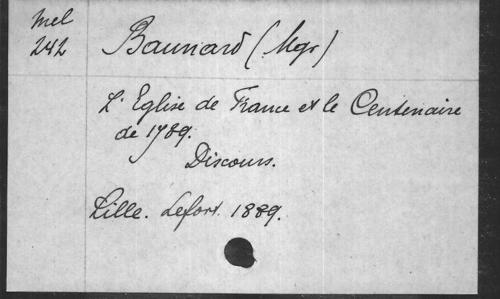 Mel
242
Baunard (Mgr)
L'Eglise de France et le Centenaire
de 1789.
Discours.
Lille. Lefort. 1889.